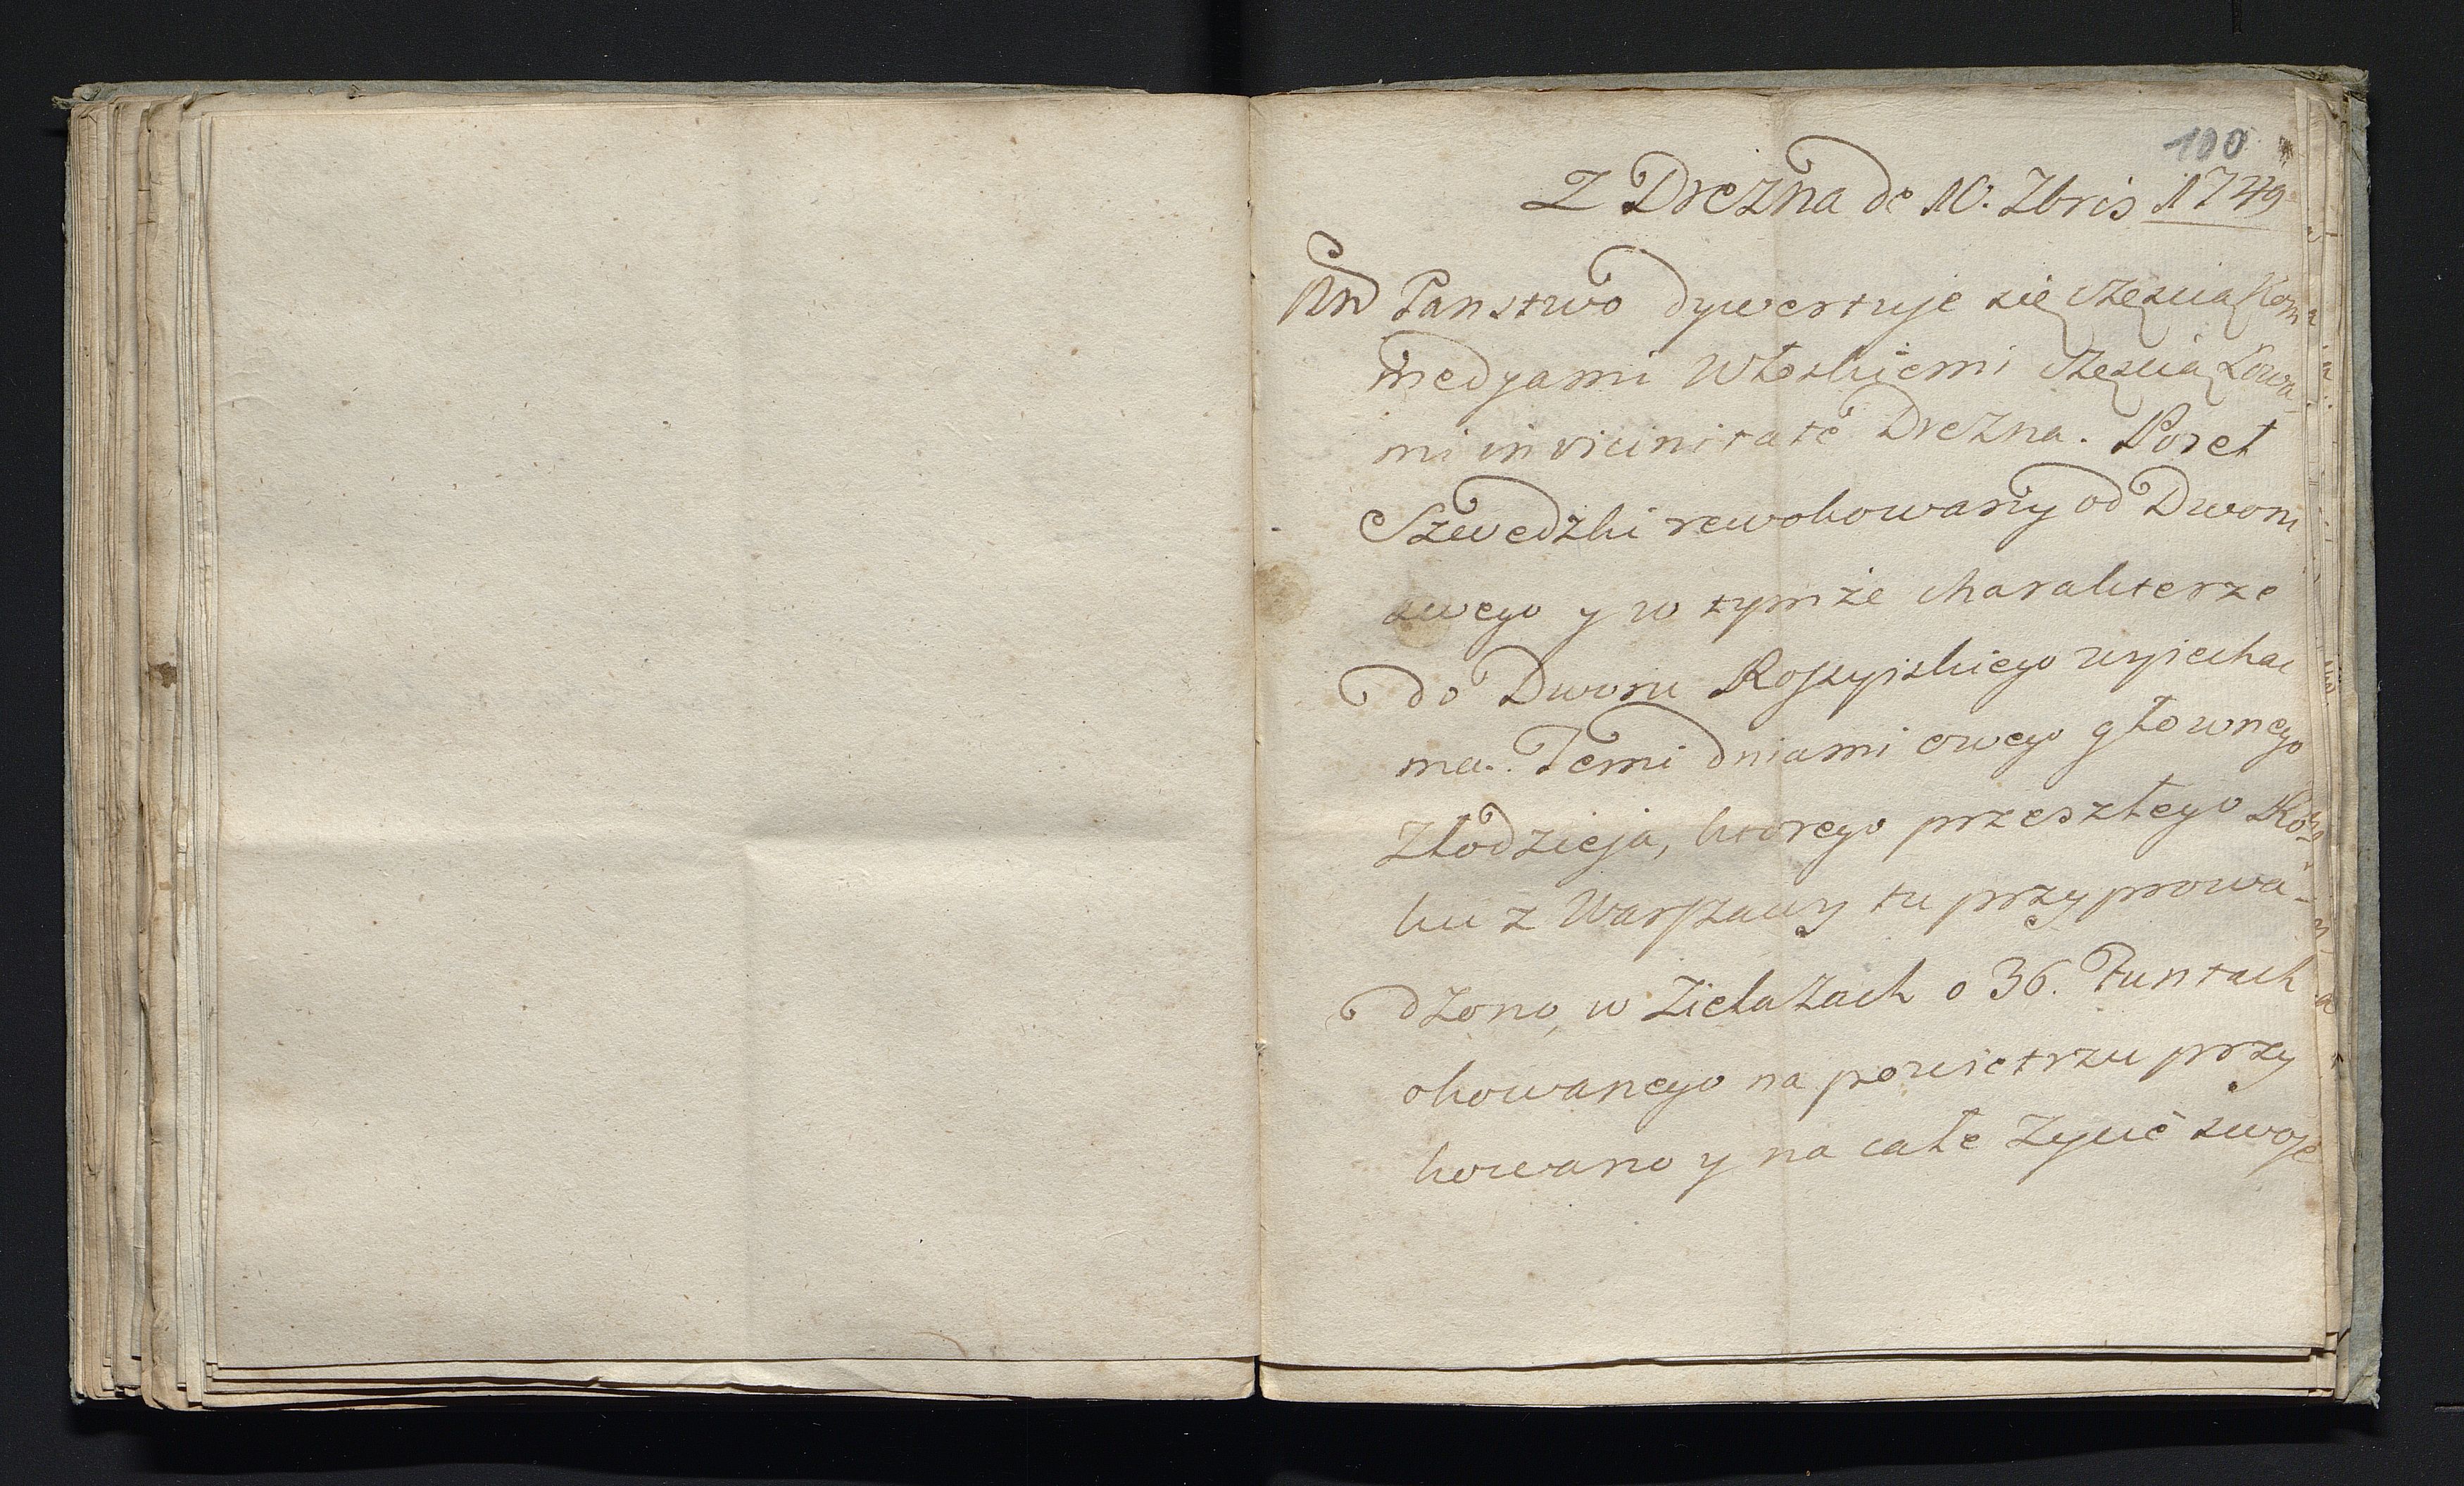 100
Z Drezna de 10. Zbris 1749
Nn Panstwo dywertuje się częścią Kom
medyami Włoskiemi częścią Łowa-
mi in vicinitate Drezna. Poseł
Szwedzki rewokowany od Dworu
swego y w tymże charakterze
do Dworu Rossyiskiego wyiechac
ma. Temi dniami owego głownego
Złodzieja, ktorego przeszłego Ro-
ku z Warszawy tu przyprowa-
dzono, w Zielazach o 36. Funtach
okowanego na powietrzu przy
kowano y na całe Zycie swoje